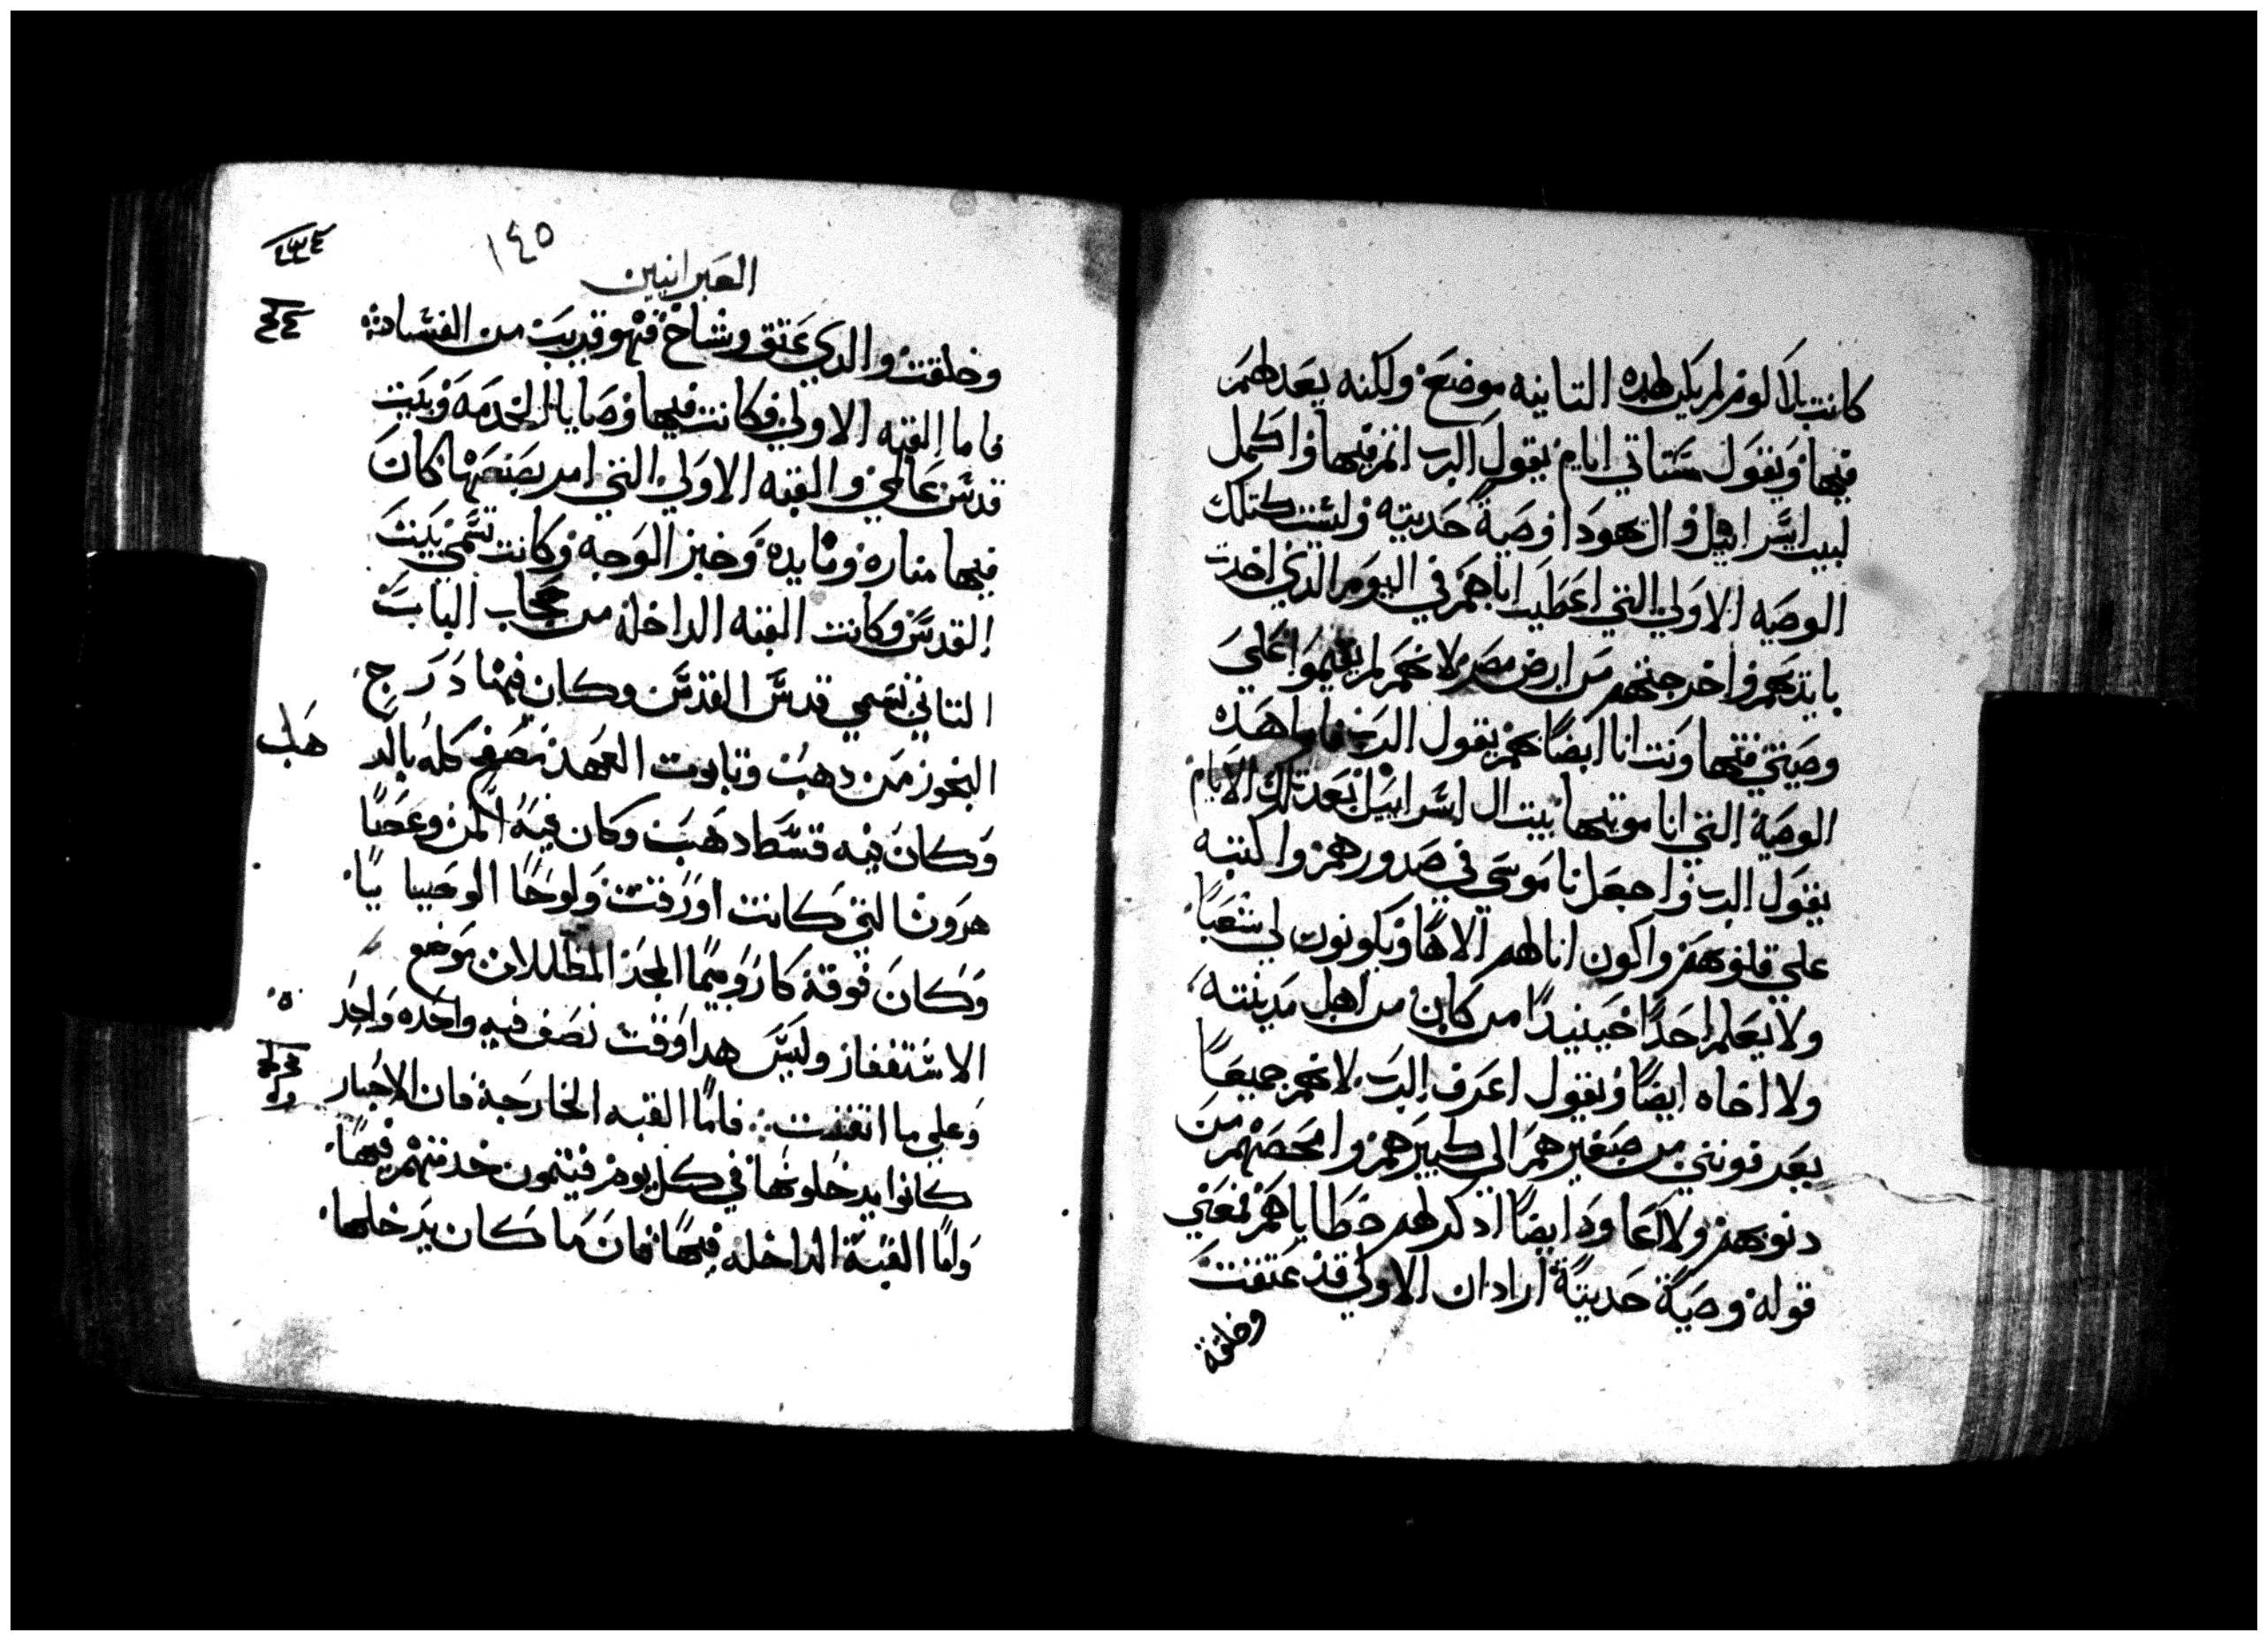 كانت بلا لوم لم يكن لهده التانيه موضع ولكنه يعدلهم
فيها ويقول ستاتي ايام يقول الرب اتم فيها واكمل
لبيت اسراييل وال يهودا وصية حديته وليست كتلك
الوصيه الاولي التي اعطيت اباهم في اليوم الدي اخدت
بايديهم واخرجتهم من ارض مصر لانهم لم يقيموا علي
وصيتي فتهاونت انا ايضًا بهم يقول الرب فاما هده
الوصية التي انا موتيها بيت ال اسراييل بعد تلك الايام
يقول الرب واجعل ناموسي في صدورهم واكتبه
علي قلوبهم واكون انا لهم الاهًا ويكونون لي شعبًا
ولا يعلم احدًا حينيدًا من كان من اهل مدينته
ولا اخاه ايضًا ويقول اعرف الرب لانهم جميعًا
يعرفونني من صغيرهم الي كبيرهم وامحصهم من
دنوبهم ولا اعاود ايضًا ادكر لهم خطاياهم فمعني
قوله وصيةً حديتةً اراد ان الاولي قد عتقت
وخلقة
١٤٥
العبرانيين
وخلقت والدي عتق وشاخ فهو قريب من الفساد
فاما القبه الاولي فكانت فيها وصايا الخدمه وبيت
قدس عالمي والقبه الاولي التي امر بصنعها كان
فيها مناره ومايده وخبز الوجه وكانت تسمي بيت
القدس وكانت القبه الداخله من حجاب الباب
التاني تسمي قدس القدس وكان فيها درج
البخور من دهب وتابوت العهد مصفح كله بالد
هب
وكان فيه قسط دهب وكان فيه المن وعصا
هرون التي كانت اورقت ولوحا الوصايا
وكان فوقه كاروبيما المجد المظللان موضع
الاستغفار وليس هدا وقت نصف فيه واحده واحد
وعلي ما اتقنت فاما القبه الخارجة فان الاحبار
كانوا يدخلونها في كل يوم فيتمون خدمتهم فيها
واما القبة الداخله فيها فان ما كان يدخلها